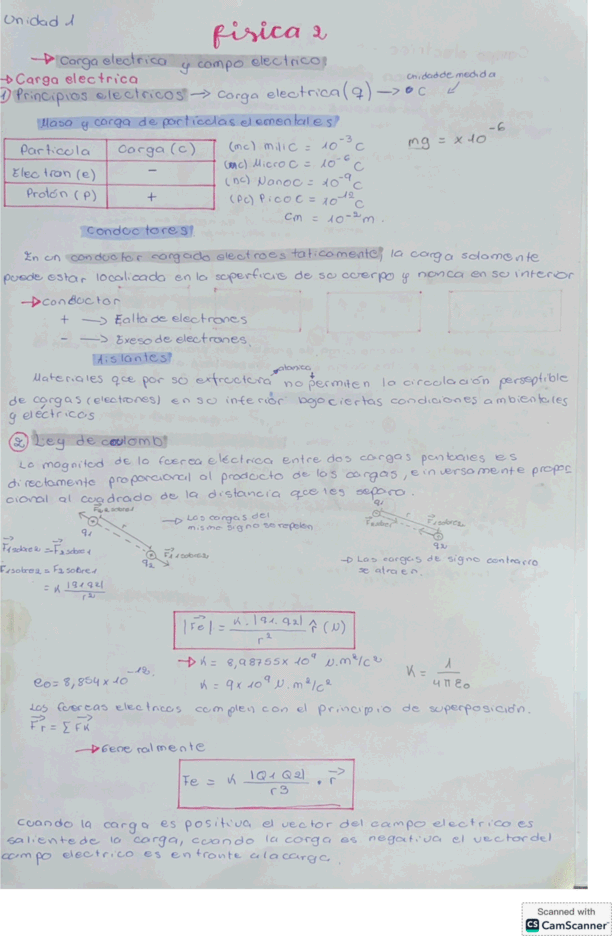 Unidad 1
Fisica 2
→ Carga electrica y campo electrico
→ Carga electrica
unidad de medida
1) Principios electricos → Carga electrica (q) → C
Masa y carga de particulas elementales
mg = x 10^-6
Particula Carga (C)
Electron (e) -
Protón (p) +
(mc) mili C = 10^-3 C
(mc) Micro C = 10^-6 C
(nc) Nano C = 10^-9 C
(pc) Pico C = 10^-12 C
cm = 10^-2 m.
Conductores
En un conductor cargado electroestaticamente, la carga solamente
puede estar localizada en la superficie de su cuerpo y nunca en su interior
→ conductor
+ → Falta de electrones
- → Exeso de electrones
Aislantes
Materiales que por su estructura no permiten la circulación perseptible
de cargas (electrones) en su interior bajo ciertas condiciones ambientales
y eléctricos
2 Ley de coulomb
La magnitud de la fuerza eléctrica entre dos cargas puntuales es
directamente proporcional al producto de las cargas, e inversamente propor
cional al cuadrado de la distancia que les separa.
F2 sobre 1
r
q1
q2
F1 sobre 2
→ Las cargas del
mismo signo se repelen
q1
F2 sobre 1
r
F1 sobre 2
q2
→ Las cargas de signo contrario
se atraen.
F1 sobre 2 = F2 sobre 1
F1 sobre 2 = F2 sobre 1
= K |q1 q2| / r²
|Fe| = K . |q1 . q2| / r² r̂ (N)
→ K = 8,98755 x 10^9 N.m²/c²
K = 9 x 10^9 N.m²/c²
K = 1 / 4πe0
e0 = 8,854 x 10^-12
Las fuerzas electricas cumplen con el principio de superposición.
Fr = Σ Fk
→ Generalmente
Fe = K |Q1 Q2| / r3 . r
Cuando la carga es positiva el vector del campo electrico es
saliente de la carga, cuando la carga es negativa el vector del
campo electrico es entrante a la carga.
Scanned with
CS CamScanner